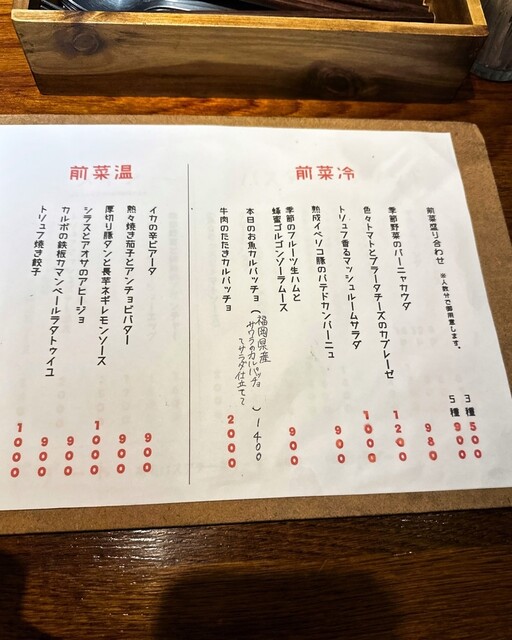 前菜冷
前菜盛り合わせ ※人数分で御用意します。 3種500
5種900
季節野菜のバーニャカウダ 980
色々トマトとブラータチーズのカプレーゼ 1200
トリュフ香るマッシュルームサラダ 1000
熟成イベリコ豚のパテドカンパーニュ 900
季節のフルーツ生ハムと
蜂蜜ゴルゴンゾーラムース 900
本日のお魚カルパッチョ (福岡県産
サワラのカルパッチョ
〜サラダ仕立て〜) 1400
牛肉のたたきカルパッチョ 2000
前菜温
イカの辛ピアータ 900
熱々焼き茄子とアンチョビバター 900
厚切り豚タンと長芋ネギレモンソース 1000
シラスとアオサのアヒージョ 900
カルボの鉄板カマンベールラタトゥイユ 900
トリュフ焼き餃子 1000